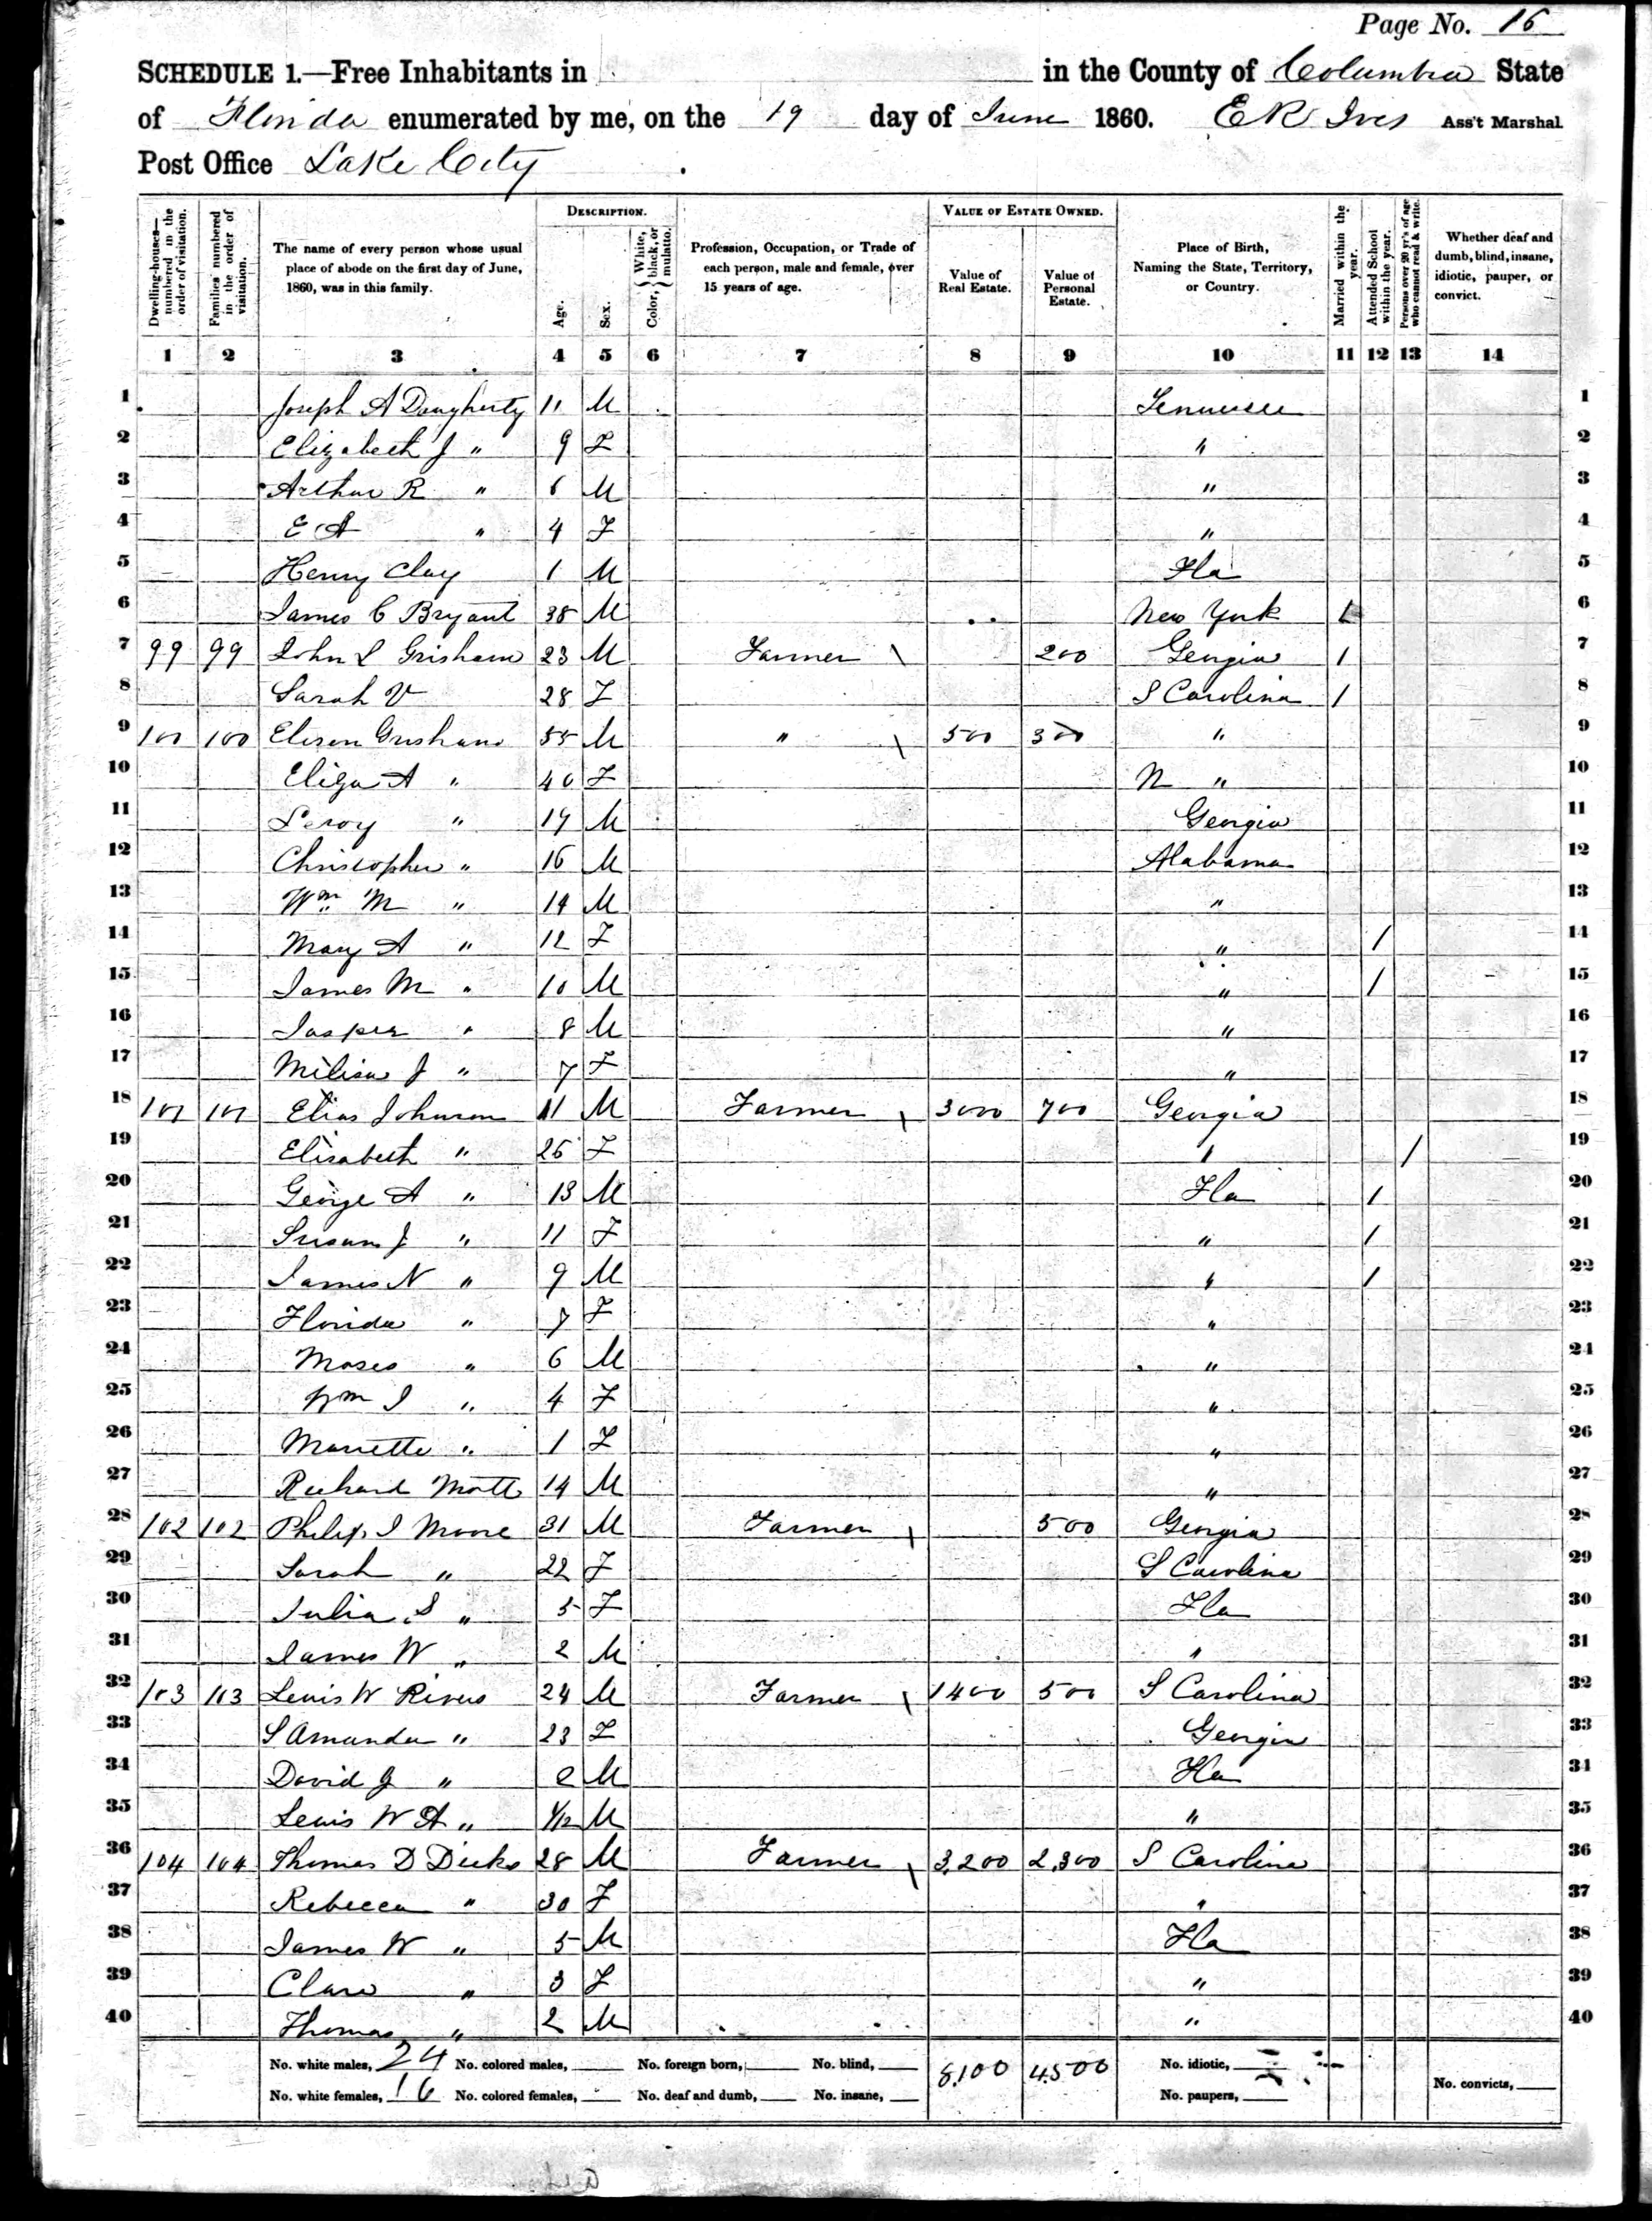 Page No. 16
SCHEDULE 1.—Free Inhabitants in in the County of Columbia State
of Florida enumerated by me, on the 19 day of June 1860. E R Ives Ass't Marshal
Post Office Lake City
Dwelling-houses—numbered in the order of visitation.
Families numbered in the order of visitation.
The name of every person whose usual place of abode on the first day of June, 1860, was in this family.
DESCRIPTION.
Age.
Sex.
Color, { White, black, or mulatto.
Profession, Occupation, or Trade of each person, male and female, over 15 years of age.
VALUE OF ESTATE OWNED.
Value of Real Estate.
Value of Personal Estate.
Place of Birth, Naming the State, Territory, or Country.
Married within the year.
Attended School within the year.
Persons over 20 y'rs of age who cannot read & write.
Whether deaf and dumb, blind, insane, idiotic, pauper, or convict.
1 2 3 4 5 6 7 8 9 10 11 12 13 14
1 Joseph A Daugherty 11 M Tennessee 1
2 Elizabeth J " 9 F " 2
3 Arthur R " 6 M " 3
4 E A " 4 F " 4
5 Henry Clay 1 M Fla 5
6 James C Bryant 38 M New York 1 6
7 99 99 John L Grisham 23 M Farmer \ 200 Georgia 1 7
8 Sarah V 28 F S Carolina 1 8
9 100 100 Grisham 55 M " \ 500 300 " 9
10 Eliza A " 40 F N " 10
11 Leroy " 19 M Georgia 11
12 Christopher " 16 M Alabama 12
13 Wm M " 14 M " 13
14 Mary A " 12 F " / 14
15 James M " 10 M " / 15
16 Jasper " 8 M " 16
17 Milisa J " 7 F " 17
18 101 101 Elias Johnson 41 M Farmer \ 3000 700 Georgia 18
19 Elisabeth " F " / 19
20 George A " 13 M Fla / 20
21 Susan J " 11 F " / 21
22 James N " 9 M " / 22
23 Florida " 7 F " 23
24 Moses " 6 M " 24
25 Wm J " 4 F " 25
26 " 1 F " 26
27 Richard Mott 14 M " 27
28 102 102 Philip J Moore 31 M Farmer \ 500 Georgia 28
29 Sarah " 22 F S Carolina 29
30 Julia S " 5 F Fla 30
31 James W " 2 M " 31
32 103 103 Lewis W Rivers 24 M Farmer \ 1400 500 S Carolina 32
33 S Amanda " 23 F Georgia 33
34 David J " 2 M Fla 34
35 Lewis W A " 1/12 M " 35
36 104 104 Thomas D Dicks 28 M Farmer \ 3,200 2,300 S Carolina 36
37 Rebecca " 30 F " 37
38 James W " 5 M Fla 38
39 Clara " 3 F " 39
40 Thomas " 2 M " 40
No. white males, 24 No. colored males, No. foreign born, No. blind, 8,100 4500 No. idiotic,
No. white females, 16 No. colored females, No. deaf and dumb, No. insane, No. paupers, No. convicts,